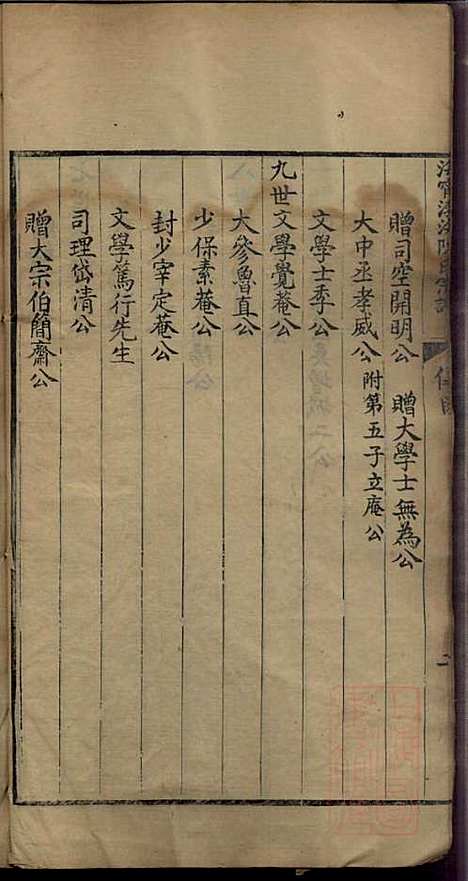 贈司空開明公　贈大學士無為公
大中丞孝威公　附第五子立庵公
文學士季公
九世文學覺菴公
大參魯直公
少保素菴公
封少宰定菴公
文學篤行先生
司理岱清公
贈大宗伯簡齋公